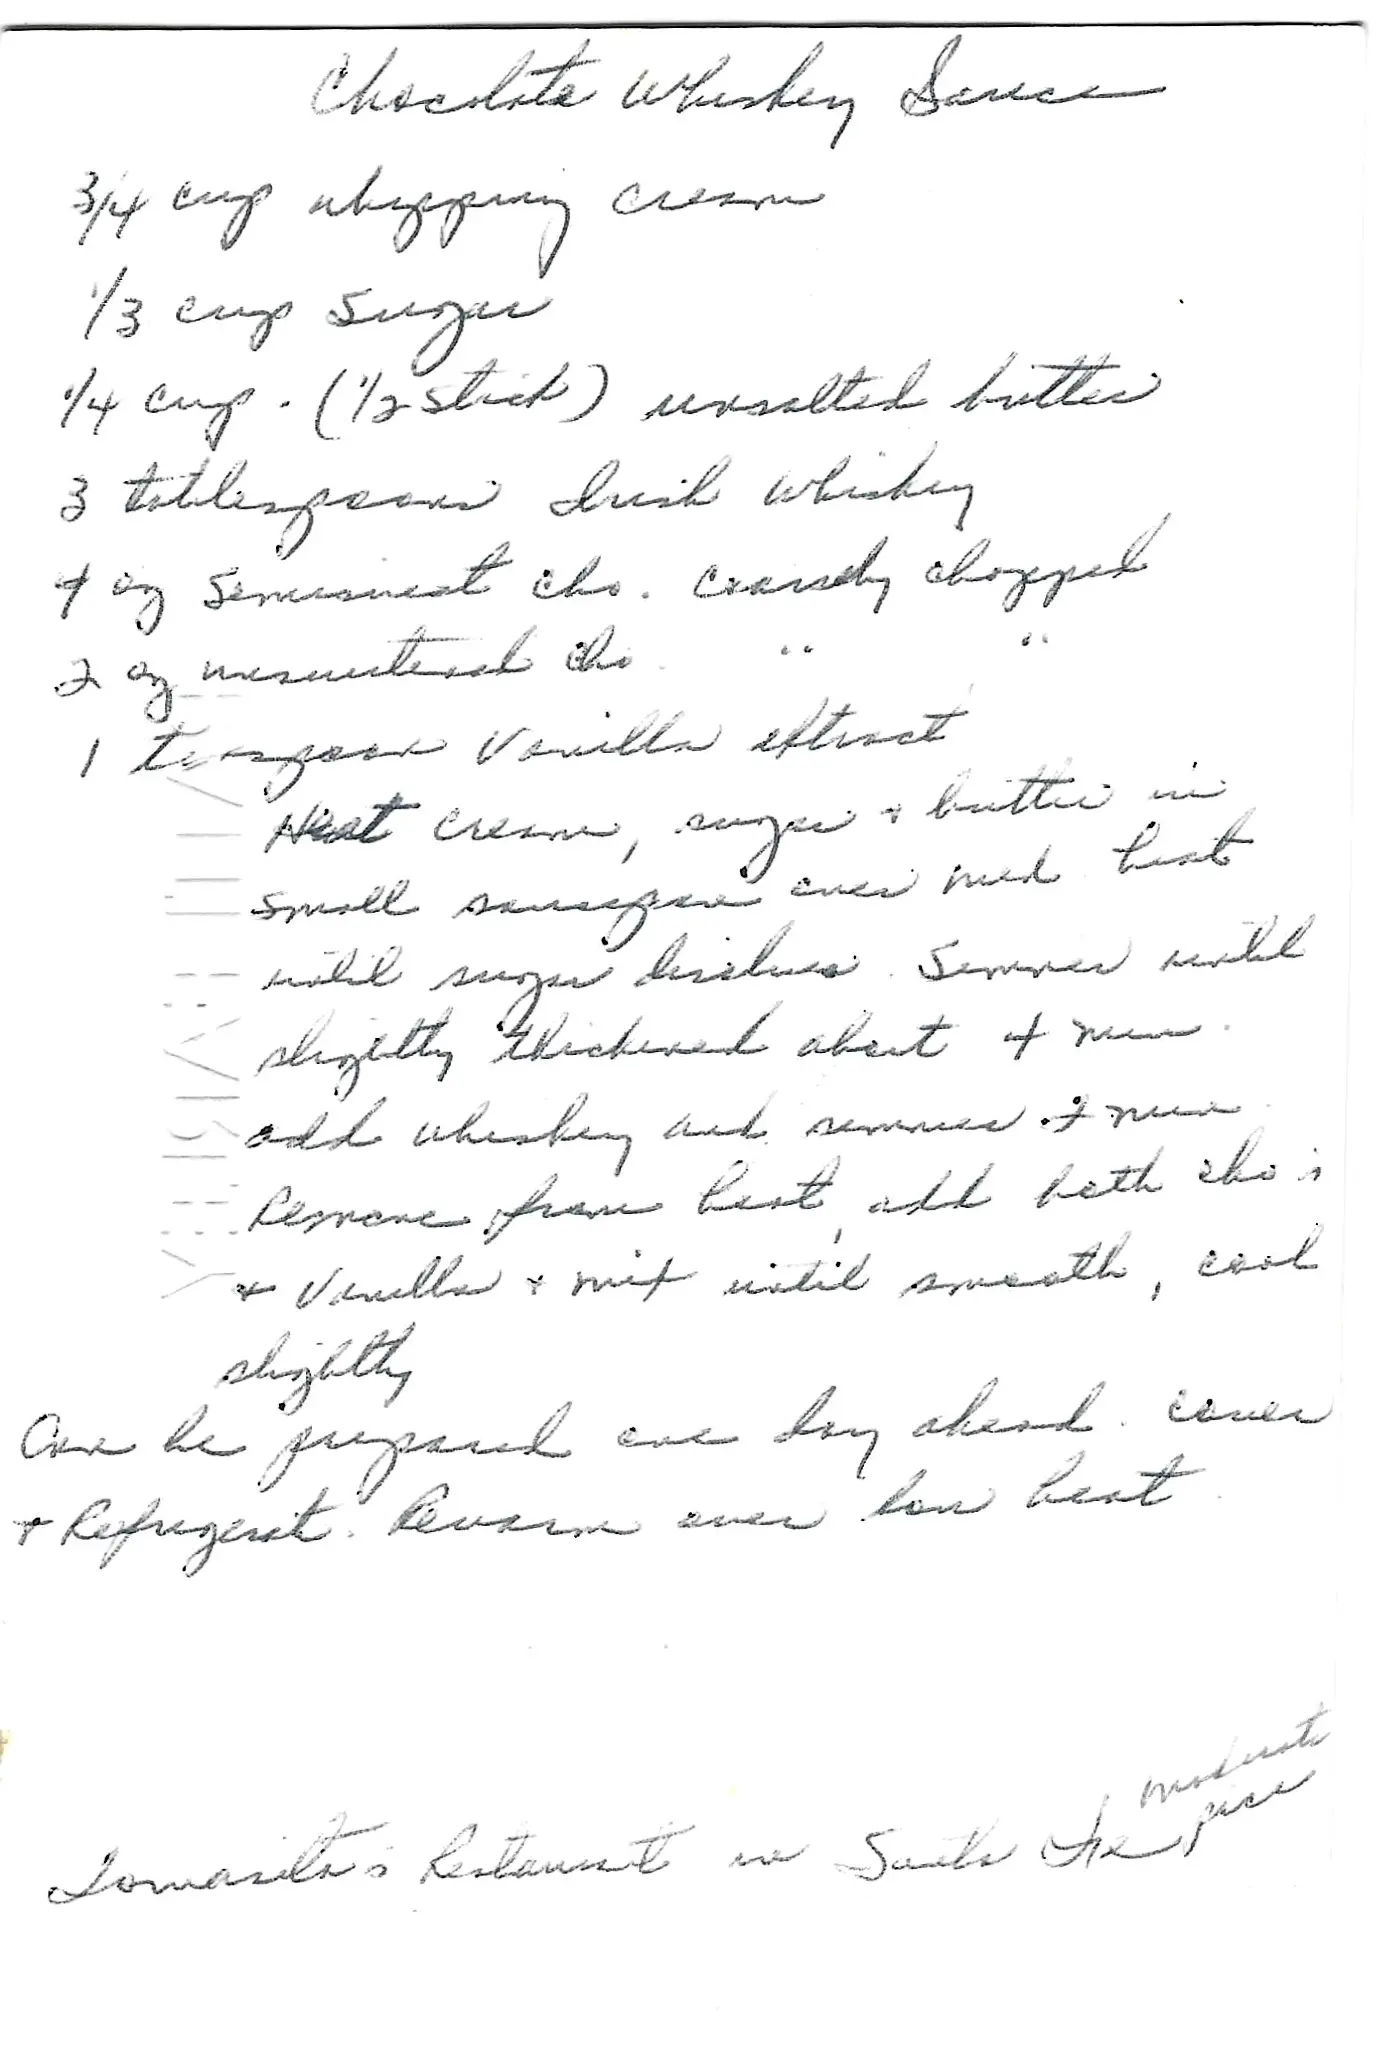 Chocolate Whiskey Sauce
3/4 cup whipping cream
1/3 cup Sugar
1/4 cup. (1/2 Stick) unsalted butter
3 tablespoons Irish Whiskey
4 oz Semisweet cho. coarsely chopped
2 oz unsweetened cho. " "
1 teaspoon Vanilla extract
Heat cream, sugar + butter in
small saucepan over med heat
until sugar disolves. Simmer until
slightly thickened about 4 min.
add whiskey and simmer 2 min.
Remove from heat, add both cho's
+ Vanilla + mix until smooth, cool
slightly
Can be prepared one day ahead. cover
+ Refrigerat. Rewarm over low heat.
moderate
price
Tomasita's Restaurant in Santa Fe